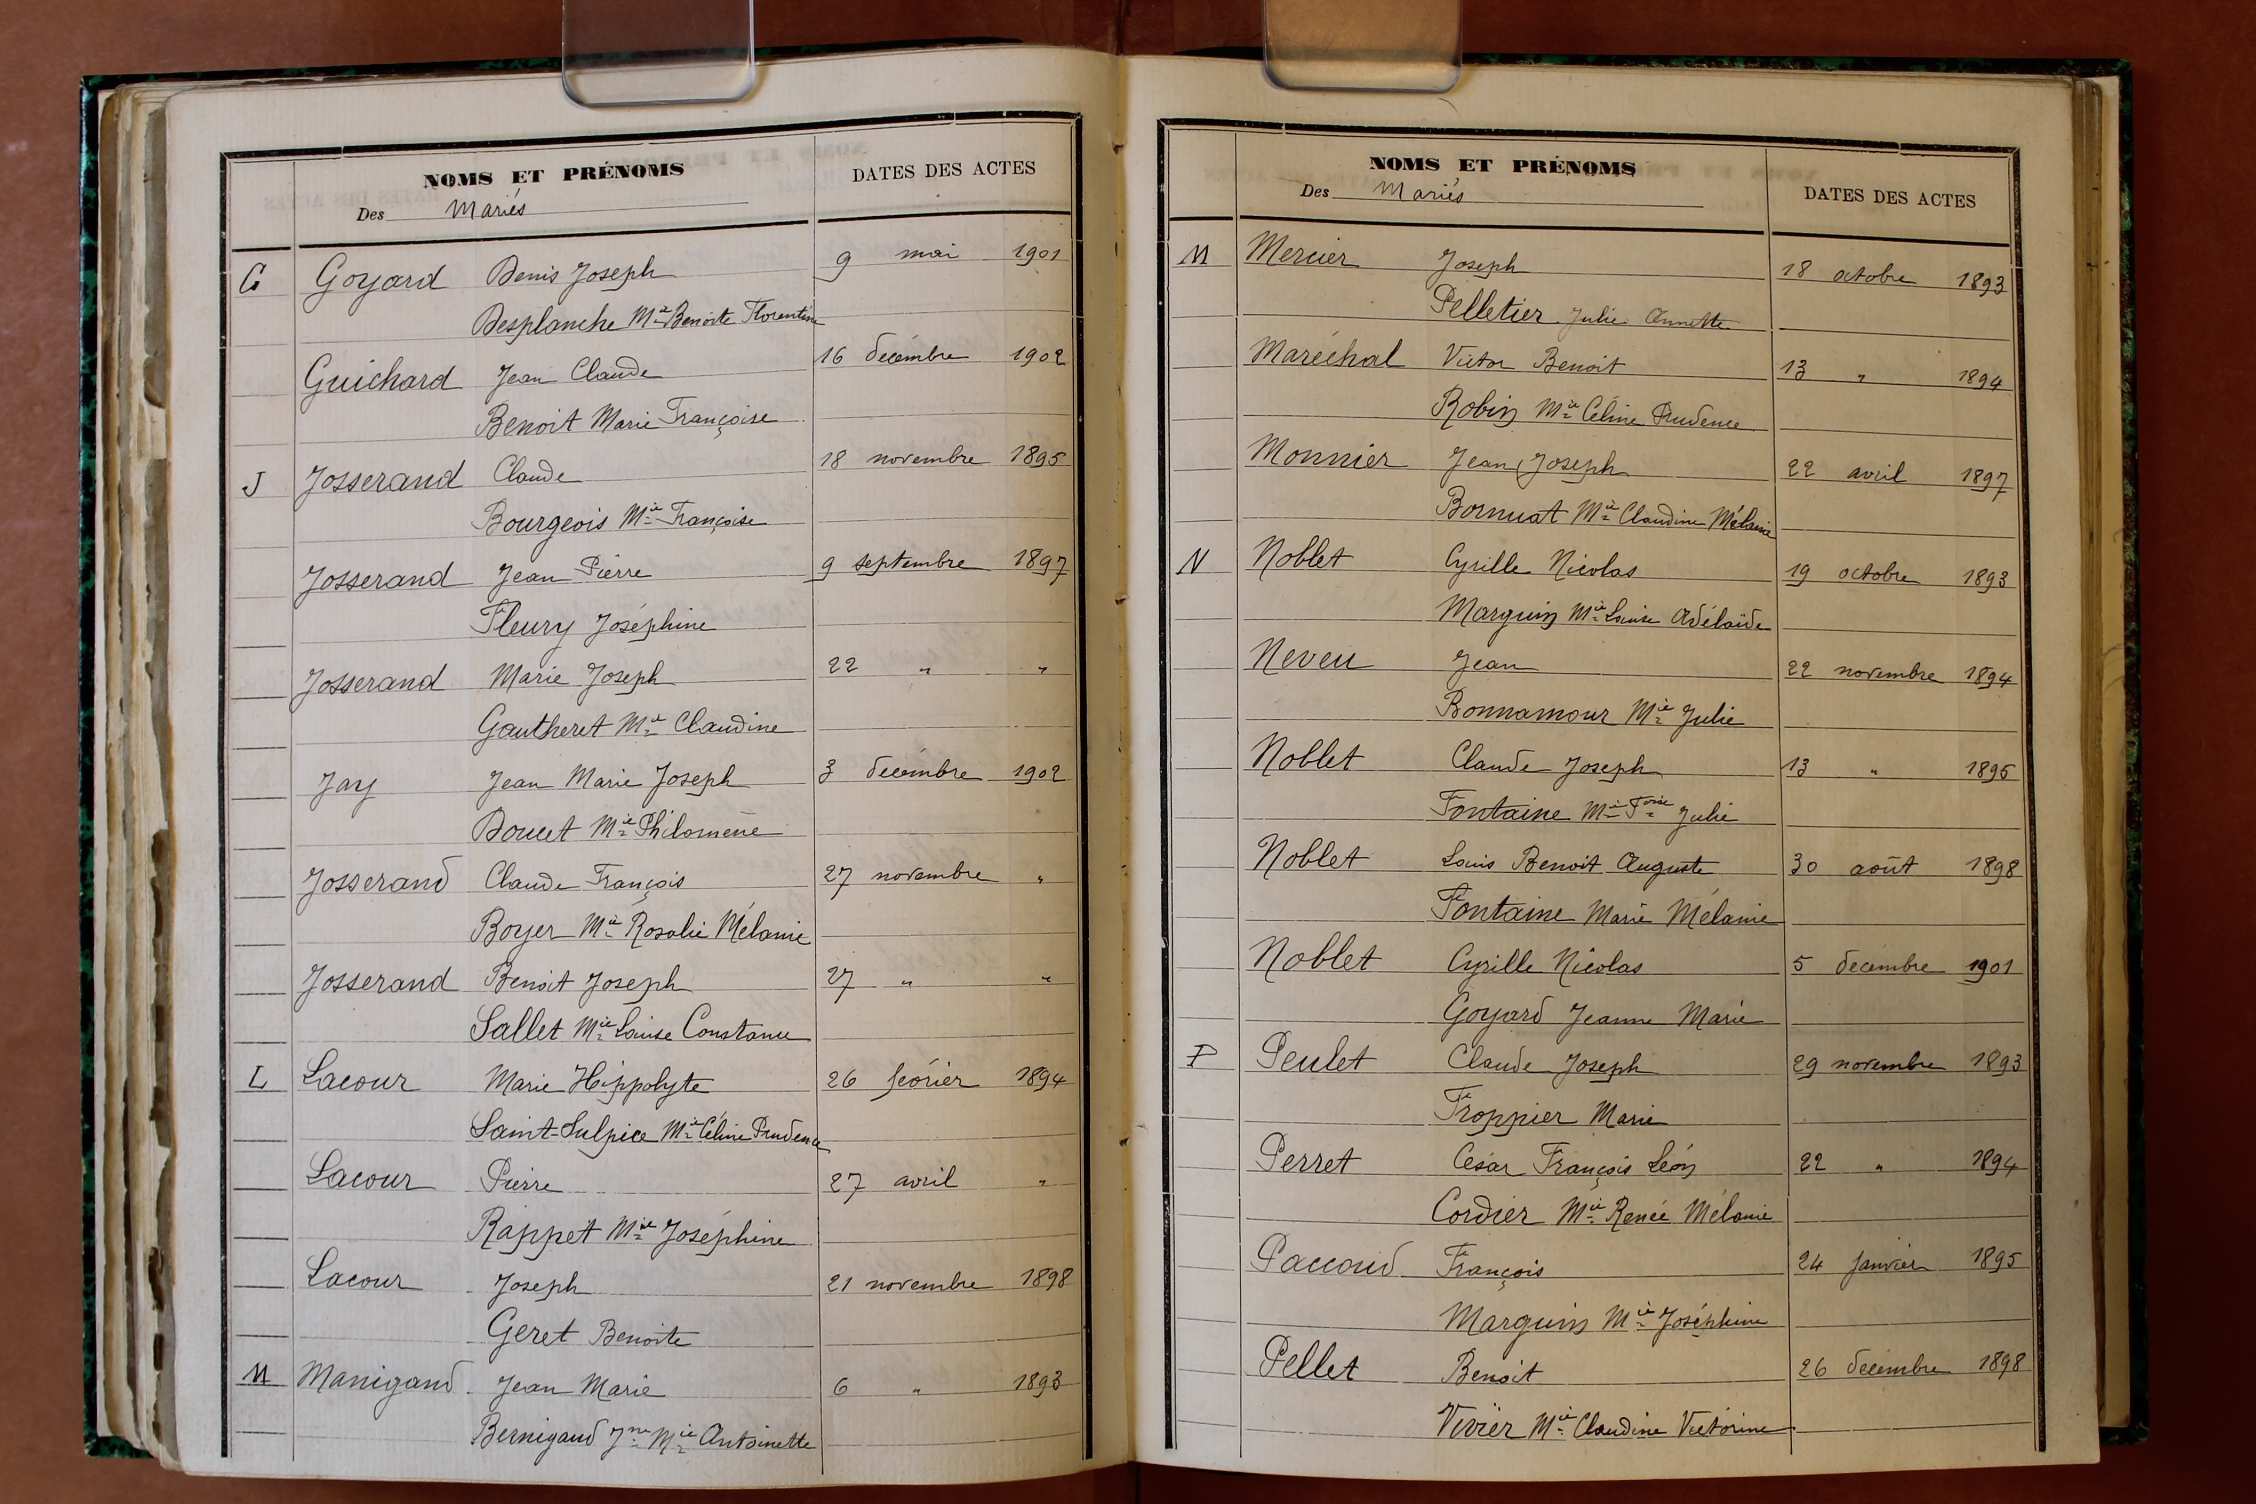 NOMS ET PRÉNOMS
Des Mariés
DATES DES ACTES
G Goyard Denis Joseph 9 mai 1901
Desplanche Mie Benoite Florentine
Guichard Jean Claude 16 décembre 1902
Benoit Marie Françoise
J Josserand Claude 18 novembre 1895
Bourgeois Mie Françoise
Josserand Jean Pierre 9 septembre 1897
Fleury Joséphine
Josserand Marie Joseph 22 " "
Gautheret Mie Claudine
Jay Jean Marie Joseph 3 décembre 1902
Doucet Mie Philomène
Josserand Claude François 27 novembre "
Boyer Mie Rosalie Mélanie
Josserand Benoit Joseph 27 " "
Sallet Mie Louise Constance
L Lacour Marie Hippolyte 26 février 1894
Saint-Sulpice Mie Céline Prudence
Lacour Pierre 27 avril "
Rappet Mie Joséphine
Lacour Joseph 21 novembre 1898
Geret Benoite
M Manigand Jean Marie 6 " 1893
Bernigaud Jne Mie Antoinette
NOMS ET PRÉNOMS
Des Mariés
DATES DES ACTES
M Mercier Joseph 18 octobre 1893
Pelletier Julie Annette
Maréchal Victor Benoit 13 " 1894
Robin Mie Céline Prudence
Monnier Jean Joseph 22 avril 1897
Bornuat Mie Claudine Mélanie
N Noblet Cyrille Nicolas 19 octobre 1893
Marguin Mie Louise Adélaïde
Neveu Jean 22 novembre 1894
Bonnamour Mie Julie
Noblet Claude Joseph 13 " 1895
Fontaine Mie Foise Julie
Noblet Louis Benoit Auguste 30 août 1898
Fontaine Marie Mélanie
Noblet Cyrille Nicolas 5 décembre 1901
Goyard Jeanne Marie
P Peulet Claude Joseph 29 novembre 1893
Froppier Marie
Perret César François Léon 22 " 1894
Cordier Mie Renée Mélanie
Paccoud François 24 janvier 1895
Marguin Mie Joséphine
Pellet Benoit 26 décembre 1898
Vivier Mie Claudine Victorine